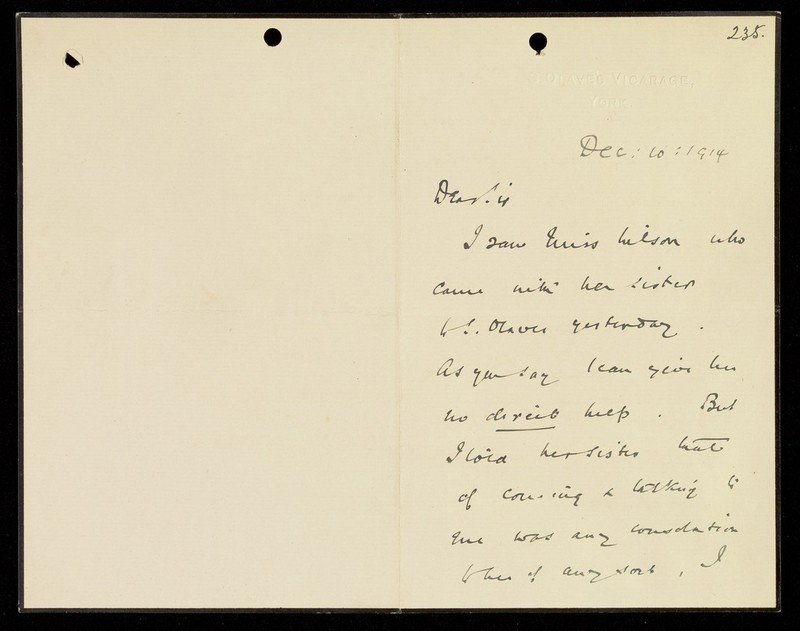 235.
ST OLAVE'S VICARAGE,
YORK.
Dec: 10: 1914
Dear Sir
I saw Miss Wilson who
came with her sister
to S. Olaves yesterday.
As you say I can give her
no direct help. But
I told her sister that
if coming & talking to
me was any consolation
to her of any sort, I